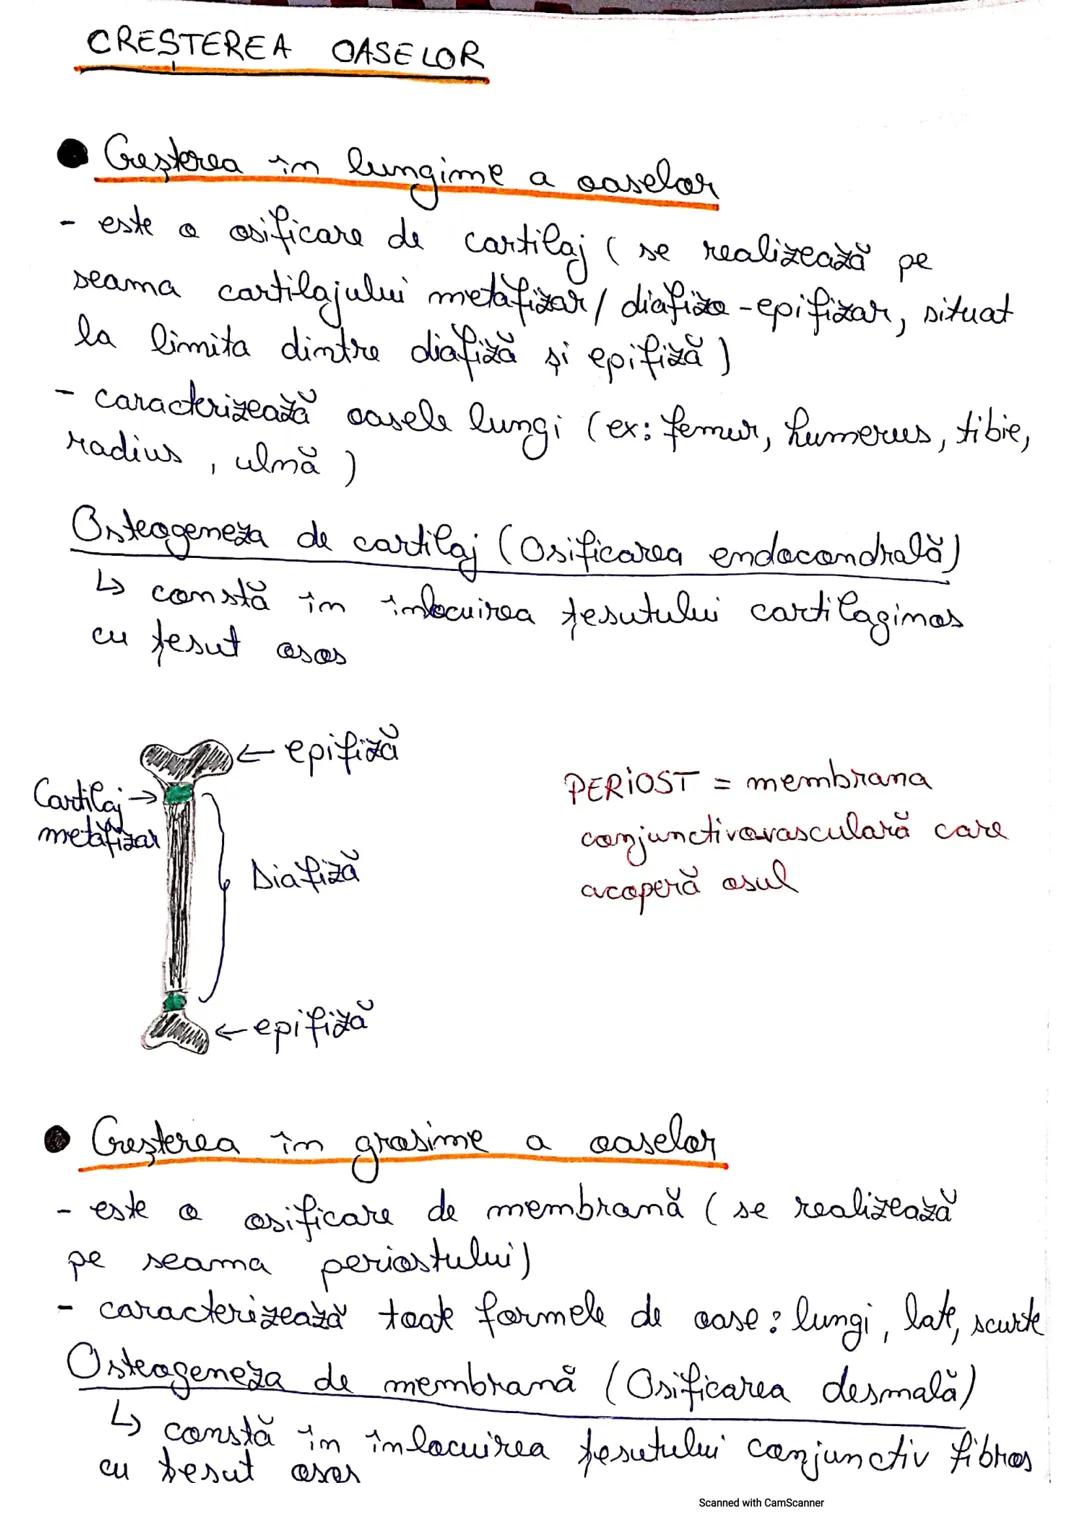 CREȘTEREA OASELOR
Creșterea în lungime a oaselor
- este o osificare de cartilaj ( se realizează pe
seama cartilajului metafizar / diafizo-epifizar, situat
la limita dintre diafiză și epifiză )
- caracterizează oasele lungi (ex: femur, humerus, tibie,
radius, ulnă )
Osteogeneza de cartilaj (Osificarea endocondrală)
↳ constă în înlocuirea țesutului cartilaginos
cu țesut osos
← epifiză
Cartilaj →
metafizar
Diafiză
← epifiză
PERIOST = membrana
conjunctivovasculară care
acoperă osul
Creșterea în grosime a oaselor
- este o osificare de membrană ( se realizează
pe seama periostului)
- caracterizează toate formele de oase: lungi, late, scurte
Osteogeneza de membrană (Osificarea desmală)
↳ constă în înlocuirea țesutului conjunctiv fibros
cu țesut osos
Scanned with CamScanner